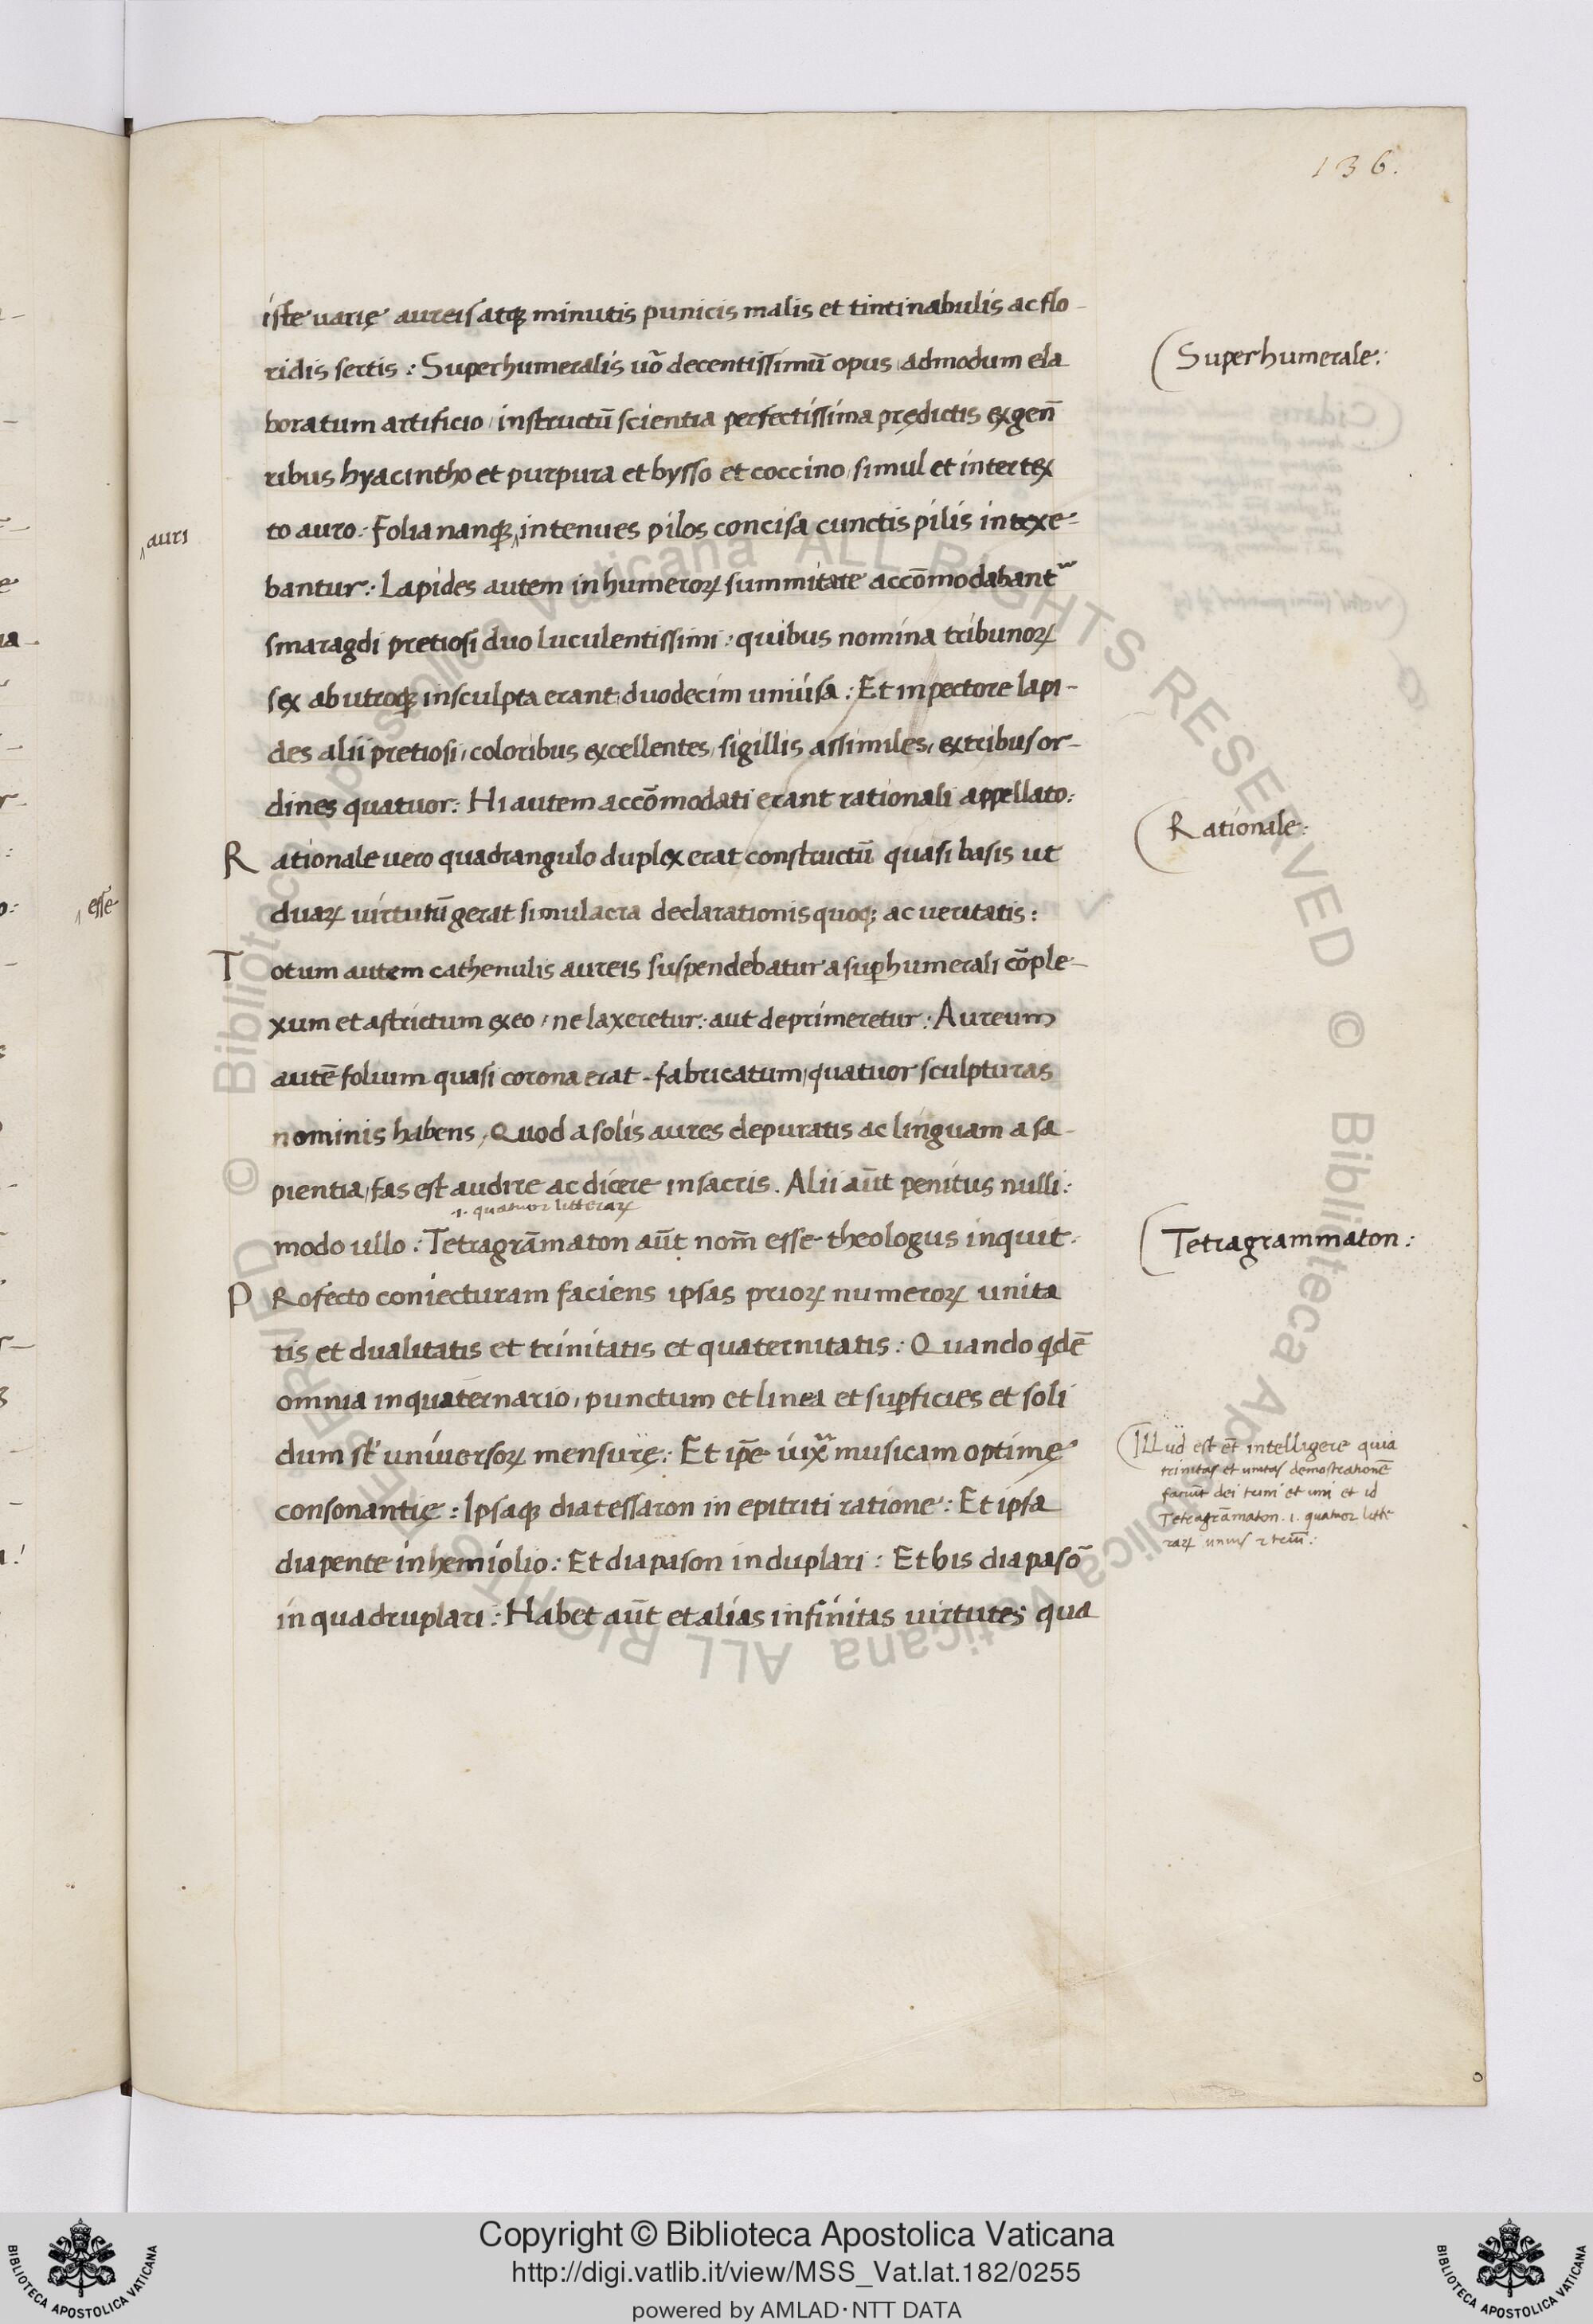 136.
iste varię aureis atq; minutis punicis malis et tintinabulis ac flo-
ridis sertis : Superhumeralis uõ decentissimũ opus admodum ela
boratum artificio instructũ scientia perfectissima prędictis ex gen̄
ribus hyacintho et purpura et bysso et coccino simul et intertex
to auro. Folia nanq; ‸ in tenues pilos concisa cunctis pilis intexe-
‸auri
bantur : Lapides autem in humeroꝝ summitate accõmodabant᷑
smaragdi pretiosi duo luculentissimi : quibus nomina tribunoꝝ
sex ab utroq; insculpta erant duodecim uniusa : Et in pectore lapi-
des alii pretiosi, coloribus excellentes, sigillis assimiles, ex tribus or-
dines quatuor : Hi autem accõmodati erant rationali appellato :
Rationale vero quadrangulo duplex erat constructũ quasi basis ut
duaꝝ virtutũ gerat simulacra declarationis quoq; ac veritatis :
‸esse
Totum autem cathenulis aureis suspendebatur a suꝑhumerali cõple-
xum et astrictum ex eo : ne laxeretur : aut deprimeretur. Aureum
autẽ folium quasi corona erat fabricatum, quatuor sculpturas
nominis habens, Quod a solis aures depuratis ac linguam a sa-
pientia, fas est audire ac dicere in sacris. Alii aũt penitus nulli :
.i. quatuor litteraꝝ
modo ullo : Tetragrãmaton aũt nom̃ esse theologus inquit :
PRofecto coniecturam faciens ipsas prioꝝ numeroꝝ unita
tis et dualitatis et trinitatis et quaternitatis : Quando qdẽ
omnia in quaternario, punctum et linea et suꝑficies et soli
dum st̃ universoꝝ mensurę : Et ip̃e musicam optimę
consonantię : Ipsaq; diatessaron in epitriti ratione : Et ipsa
diapente in hemiolio : Et diapason in duplari : Et bis diapasõ
in quadruplari : Habet aũt et alias infinitas virtutes qua
Superhumerale :
Rationale :
Tetragrammaton :
Illud est et̃ intelligere quia
trinitas et unitas demostrationẽ
faciũt dei trini et uni et id
Tetragrãmaton .i. quatuor litte
raꝝ unius
Copyright © Biblioteca Apostolica Vaticana
http://digi.vatlib.it/view/MSS_Vat.lat.182/0255
powered by AMLAD·NTT DATA
BIBLIOTECA APOSTOLICA VATICANA
BIBLIOTECA APOSTOLICA VATICANA
© Biblioteca Apostolica Vaticana ALL RIGHTS RESERVED
© Biblioteca Apostolica Vaticana ALL RIGHTS RESERVED